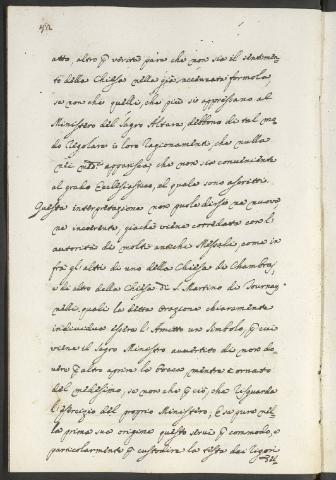 atto, altro p verità pare che non sia il sentimen-
to della Chiesa nella già recitata formola
se non che quelli, che più si appressano al
Ministero del Sagro Altare, debbono di tal mo-
do regolare i loro ragionamenti, che nulla
nei med.i apparisca, che non sia conveniente
al grado Ecclesiastico, al quale sono ascritti.
Questa interpretazione non può dirsi ne nuova
ne incoerente, giacchè viene corredata con l'
autorità di molti antichi Messali, come in
frà gli altri di uno della Chiesa de Chambra,
e di altro della Chiesa di S. Martino di Tournay
nelli quali la detta Orazione chiaramente
individua essere l'Amitto un Simbolo, p cui
viene il Sagro Ministro avvertito di non do-
vere p altro aprire la bocca mentre è ornato
del medesimo, se non che p ciò, che risguarda
l'esercizio del proprio Ministero; E se pure nel-
la prima sua origine questo servì p commodo, e
particolarmente p custodire la testa dai rigori